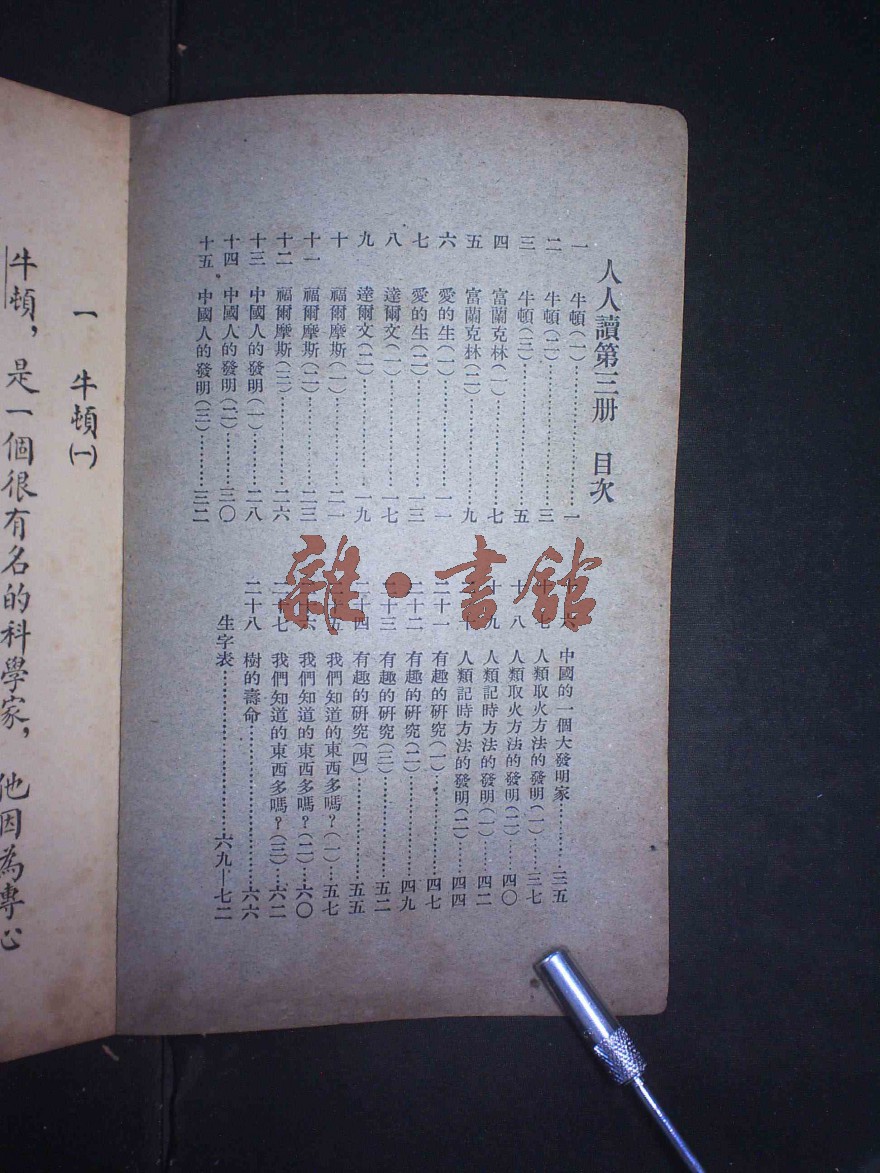 人人讀第三册　目次
一　牛頓（一）…………一
二　牛頓（二）…………三
三　牛頓（三）…………五
四　富蘭克林（一）…………七
五　富蘭克林（二）…………九
六　愛的生（一）…………一一
七　愛的生（二）…………一三
八　達爾文（一）…………一七
九　達爾文（二）…………一九
十　福爾摩斯（一）…………二一
十一　福爾摩斯（二）…………二三
十二　福爾摩斯（三）…………二六
十三　中國人的發明（一）…………二八
十四　中國人的發明（二）…………三〇
十五　中國人的發明（三）…………三二
十六　中國的一個大發明家…………三五
十七　人類取火方法的發明（一）……三七
十八　人類取火方法的發明（二）……四〇
十九　人類記時方法的發明（一）……四二
二十　人類記時方法的發明（二）……四四
二十一　有趣的研究（一）…………四七
二十二　有趣的研究（二）…………四九
二十三　有趣的研究（三）…………五二
二十四　有趣的研究（四）…………五五
二十五　我們知道的東西多嗎？（一）……五七
二十六　我們知道的東西多嗎？（二）……六〇
二十七　我們知道的東西多嗎？（三）……六二
二十八　樹的壽命…………六六
生字表…………六九—七二
雜·書館
一　牛頓㈠
牛頓，是一個很有名的科學家，他因為專心